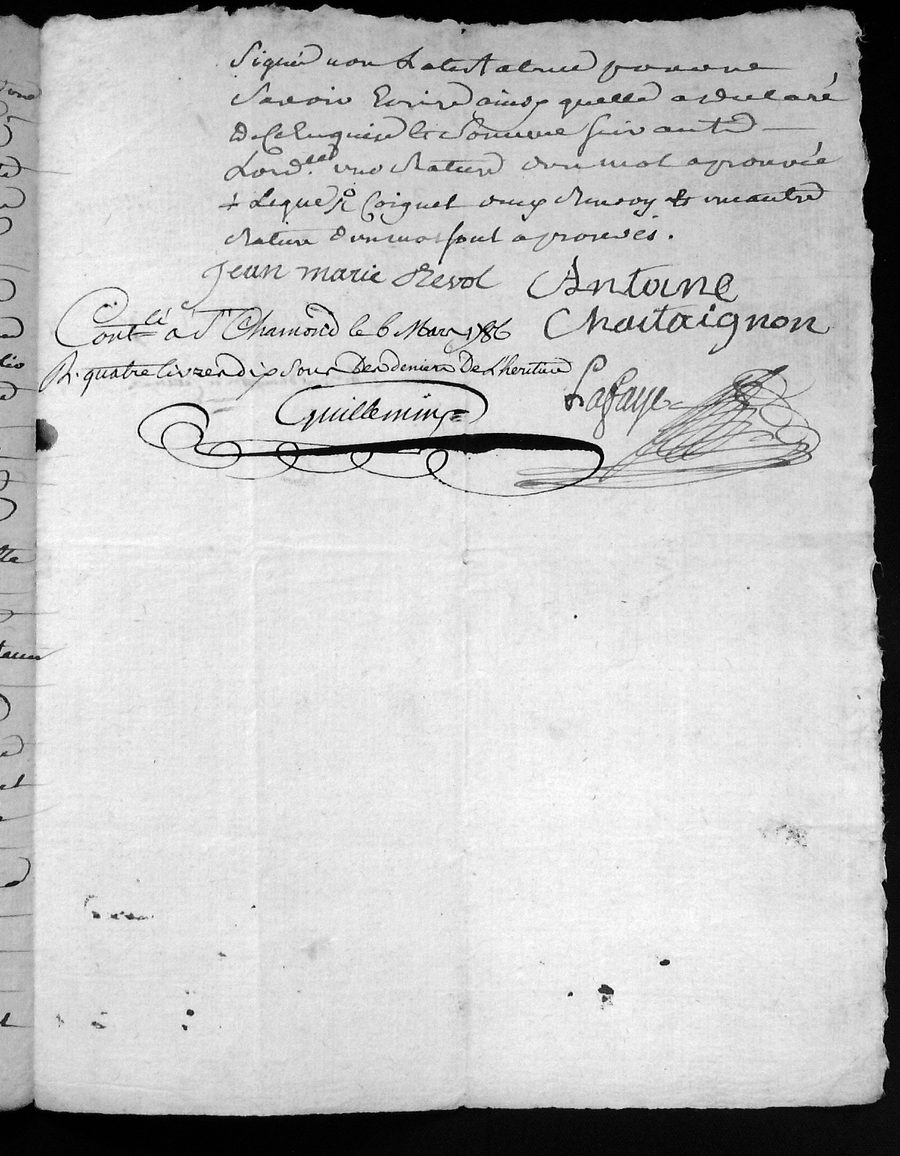 signé non La testatrice pour ne
savoir Ecrire ainsy quelle a declaré
De ce Enquise & Sommée suivant
Lord.ce une Rature d'un mot aprouvée
+ Lequel Sr Coignet deux Renvoy & une autre
Rature d'un mot sont aprouvés.
Jean marie Revol Antoine
Chastaignon
Contlé a St Chamond le 6 Mars 1786
R. quatre livres dix sous Des deniers De L'heritiere
Guillemin
Lafaye